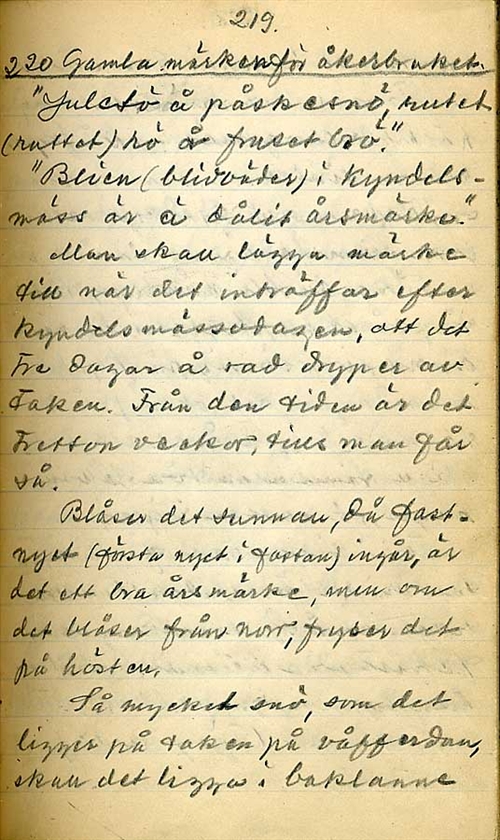 219.
220 Gamla märken för åkerbruket.
"Juletö å påskesnö, rutet
(ruttet) hö å fruset brö."
"Blien (blidväder) i Kyndels-
mäss är å dålit årsmärke."
Man skall lägga märke
till när det inträffar efter
Kyndelsmässodagen, att det
tre dagar å rad dryper av
taken. Från den tiden är det
tretton veckor, tills man får
så.
Blåser det sunnan, då fast-
nyet (första nyet i fastan) ingår, är
det ett bra årsmärke, men om
det blåser från norr, fryser det
på hösten.
Så mycket snö, som det
ligger på taken på våfferdan,
skall det ligga i baklanne